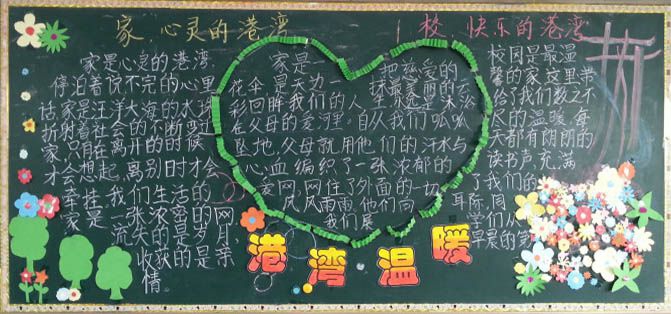 家、心灵的港湾
校、快乐的港湾
家是心灵的港湾,
停泊着说不完的心里
话,家是汪洋大海的水珠
折射着社会的不断变迁
家,只有在离开的时候
才会想起,离别时才会
牵挂,我们生活的
家是一张浓密的网
流失的是岁月,
收获的是亲
情。
家是一
花伞,是天边
彩回眸我们的人
在父母的爱河里,自从我们呱呱
坠地,父母就用他们的汗水与
心血编织了一张浓郁的
爱网,网住了外面的一切
风风雨雨,他们向
我们展
校园是最温
馨的家,这里带
给了我们数之不
尽的温暖,每
天都有朗朗的
读书声,充满
了我们的
耳际,同
学们从
早晨的第
港湾温暖